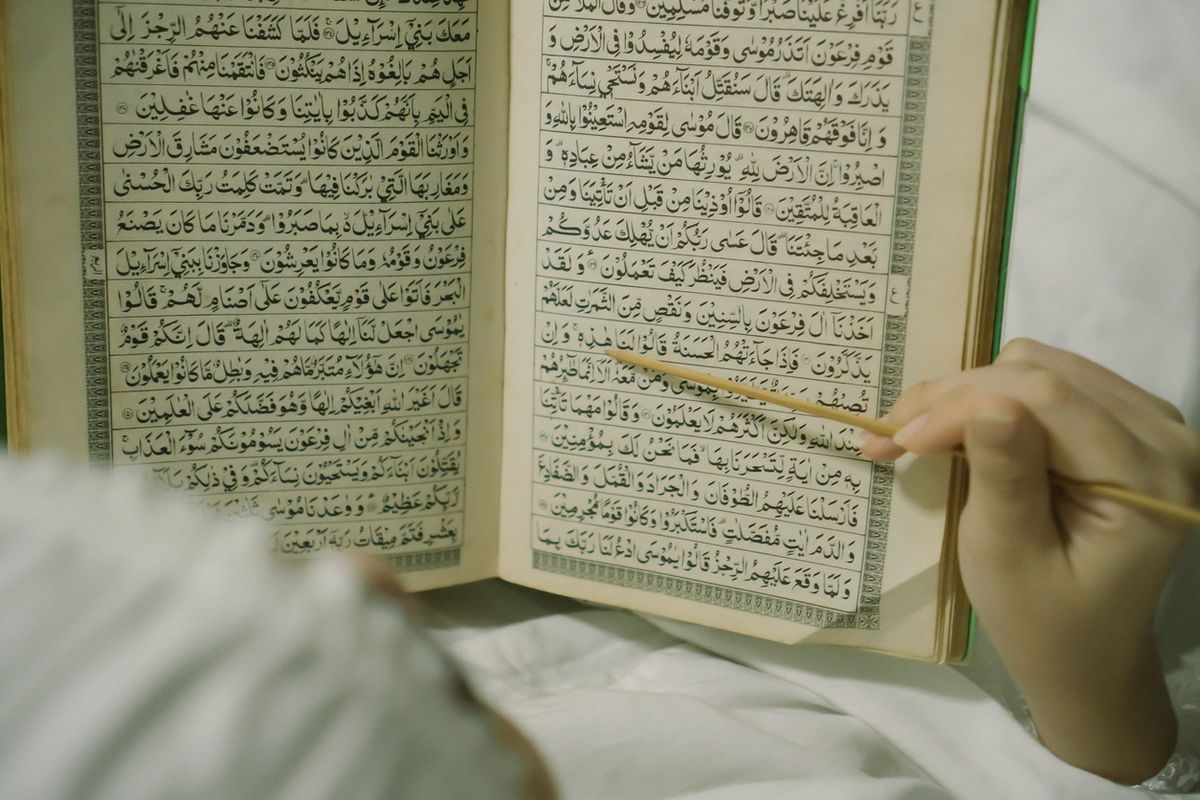 رَبَّنَآ اَفْرِغْ عَلَيْنَا صَبْرًا وَّتَوَفَّنَا مُسْلِمِيْنَ ۝ وَقَالَ الْمَلَاُ مِنْ
قَوْمِ فِرْعَوْنَ اَتَذَرُ مُوْسٰى وَقَوْمَهٗ لِيُفْسِدُوْا فِى الْاَرْضِ وَ
يَذَرَكَ وَاٰلِهَتَكَ ؕ قَالَ سَنُقَتِّلُ اَبْنَآءَهُمْ وَنَسْتَحْىٖ نِسَآءَهُمْ ۚ
وَ اِنَّا فَوْقَهُمْ قٰهِرُوْنَ ۝ قَالَ مُوْسٰى لِقَوْمِهِ اسْتَعِيْنُوْا بِاللّٰهِ وَ
اصْبِرُوْا ۚ اِنَّ الْاَرْضَ لِلّٰهِ ۙ يُوْرِثُهَا مَنْ يَّشَآءُ مِنْ عِبَادِهٖ ؕ وَ
الْعَاقِبَةُ لِلْمُتَّقِيْنَ ۝ قَالُوْٓا اُوْذِيْنَا مِنْ قَبْلِ اَنْ تَاْتِيَنَا وَمِنْۢ
بَعْدِ مَا جِئْتَنَا ؕ قَالَ عَسٰى رَبُّكُمْ اَنْ يُّهْلِكَ عَدُوَّكُمْ
وَيَسْتَخْلِفَكُمْ فِى الْاَرْضِ فَيَنْظُرَ كَيْفَ تَعْمَلُوْنَ ۝ وَ لَقَدْ ع
اَخَذْنَآ اٰلَ فِرْعَوْنَ بِالسِّنِيْنَ وَنَقْصٍ مِّنَ الثَّمَرٰتِ لَعَلَّهُمْ
يَذَّكَّرُوْنَ ۝ فَاِذَا جَآءَتْهُمُ الْحَسَنَةُ قَالُوْا لَنَا هٰذِهٖ ۚ وَ اِنْ
تُصِبْهُمْ سَيِّئَةٌ يَّطَّيَّرُوْا بِمُوْسٰى وَمَنْ مَّعَهٗ ؕ اَلَآ اِنَّمَا طٰٓئِرُهُمْ
عِنْدَ اللّٰهِ وَلٰكِنَّ اَكْثَرَهُمْ لَا يَعْلَمُوْنَ ۝ وَقَالُوْا مَهْمَا تَاْتِنَا
بِهٖ مِنْ اٰيَةٍ لِّتَسْحَرَنَا بِهَا ۙ فَمَا نَحْنُ لَكَ بِمُؤْمِنِيْنَ ۝
فَاَرْسَلْنَا عَلَيْهِمُ الطُّوْفَانَ وَ الْجَرَادَ وَ الْقُمَّلَ وَ الضَّفَادِعَ
وَ الدَّمَ اٰيٰتٍ مُّفَصَّلٰتٍ ۫ فَاسْتَكْبَرُوْا وَ كَانُوْا قَوْمًا مُّجْرِمِيْنَ ۝
وَ لَمَّا وَقَعَ عَلَيْهِمُ الرِّجْزُ قَالُوْا يٰمُوْسَى ادْعُ لَنَا رَبَّكَ بِمَا
مَعَكَ بَنِىْٓ اِسْرَآءِيْلَ ۝ فَلَمَّا كَشَفْنَا عَنْهُمُ الرِّجْزَ اِلٰٓى
اَجَلٍ هُمْ بٰلِغُوْهُ اِذَا هُمْ يَنْكُثُوْنَ ۝ فَانْتَقَمْنَا مِنْهُمْ فَاَغْرَقْنٰهُمْ
فِى الْيَمِّ بِاَنَّهُمْ كَذَّبُوْا بِاٰيٰتِنَا وَ كَانُوْا عَنْهَا غٰفِلِيْنَ ۝
وَ اَوْرَثْنَا الْقَوْمَ الَّذِيْنَ كَانُوْا يُسْتَضْعَفُوْنَ مَشَارِقَ الْاَرْضِ
وَ مَغَارِبَهَا الَّتِىْ بٰرَكْنَا فِيْهَا ؕ وَ تَمَّتْ كَلِمَتُ رَبِّكَ الْحُسْنٰى
عَلٰى بَنِىْٓ اِسْرَآءِيْلَ ۙ بِمَا صَبَرُوْا ؕ وَ دَمَّرْنَا مَا كَانَ يَصْنَعُ
فِرْعَوْنُ وَ قَوْمُهٗ وَمَا كَانُوْا يَعْرِشُوْنَ ۝ وَجٰوَزْنَا بِبَنِىْٓ اِسْرَآءِيْلَ
الْبَحْرَ فَاَتَوْا عَلٰى قَوْمٍ يَّعْكُفُوْنَ عَلٰٓى اَصْنَامٍ لَّهُمْ ۚ قَالُوْا
يٰمُوْسَى اجْعَلْ لَّنَآ اِلٰهًا كَمَا لَهُمْ اٰلِهَةٌ ؕ قَالَ اِنَّكُمْ قَوْمٌ
تَجْهَلُوْنَ ۝ اِنَّ هٰٓؤُلَآءِ مُتَبَّرٌ مَّا هُمْ فِيْهِ وَ بٰطِلٌ مَّا كَانُوْا يَعْمَلُوْنَ ۝
قَالَ اَغَيْرَ اللّٰهِ اَبْغِيْكُمْ اِلٰهًا وَّ هُوَ فَضَّلَكُمْ عَلَى الْعٰلَمِيْنَ ۝
وَ اِذْ اَنْجَيْنٰكُمْ مِّنْ اٰلِ فِرْعَوْنَ يَسُوْمُوْنَكُمْ سُوْٓءَ الْعَذَابِ ۚ
يُقَتِّلُوْنَ اَبْنَآءَكُمْ وَ يَسْتَحْيُوْنَ نِسَآءَكُمْ ؕ وَ فِىْ ذٰلِكُمْ
رَّبِّكُمْ عَظِيْمٌ ۝ وَ وٰعَدْنَا مُوْسٰى
بِعَشْرٍ فَتَمَّ مِيْقَاتُ رَبِّهٖٓ اَرْبَعِيْنَ